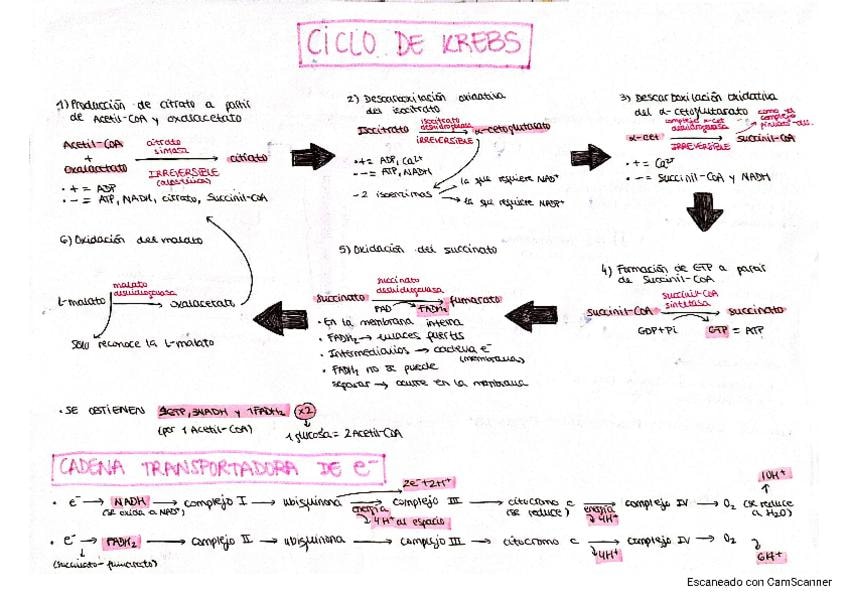 CICLO DE KREBS
1) Producción de citrato a partir
de Acetil-CoA y oxalacetato
Acetil-CoA
+
Oxalactato
citrato
sintasa
IRREVERSIBLE
citrato
• + = ADP
• - = ATP, NADH, citrato, Succinil-CoA
2) Descarboxilación oxidativa
del isocitrato
Isocitrato
isocitrato
deshidrogenasa
IRREVERSIBLE
α-cetoglutarato
• + = ADP, Ca2+
• - = ATP, NADH
- 2 isoenzimas
la que requiere NAD+
la que requiere NADP+
3) Descarboxilación oxidativa
del α-cetoglutarato
α-cet
complejo α-cet
deshidrogenasa
IRREVERSIBLE
como el
complejo
succinil-CoA
• + = Ca2+
• - = Succinil-CoA y NADH
4) Formación de GTP a partir
de Succinil-CoA
succinil-CoA
succinil-CoA
sintetasa
succinato
GDP+Pi
GTP = ATP
5) Oxidación del succinato
succinato
succinato
deshidrogenasa
fumarato
FAD
FADH2
• En la membrana interna
• FADH2 → enlaces fuertes
• Intermediarios → cadena e-
(membrana)
• FADH2 no se puede
separar → ocurre en la membrana
6) Oxidación del malato
L-malato
malato
deshidrogenasa
oxalacetato
Solo reconoce la L-malato
• SE OBTIENEN 1GTP, 3NADH y 1FADH2 x2
(por 1 Acetil-CoA)
1 glucosa = 2 Acetil-CoA
CADENA TRANSPORTADORA DE e-
• e- → NADH → complejo I → ubiquinona → complejo III → citocromo c → complejo IV → O2 (se reduce
a H2O)
(se oxida a NAD+)
2e-+2H+
energía
4H+ al espacio
(se reduce)
energía
4H+
10H+
• e- → FADH2 → complejo II → ubiquinona → complejo III → citocromo c → complejo IV → O2
(succinato-fumarato)
4H+
6H+
Escaneado con CamScanner